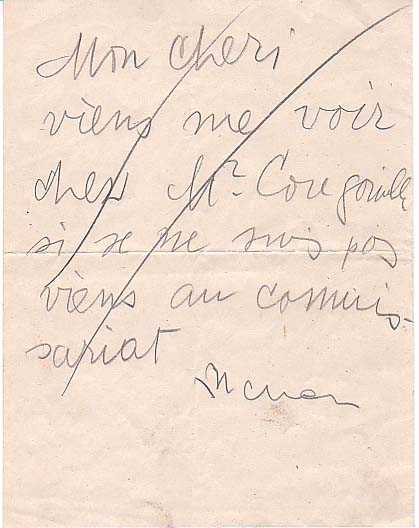 Mon cheri
viens me voir
chez Mr.
si je ne suis pas
viens au commis-
sariat